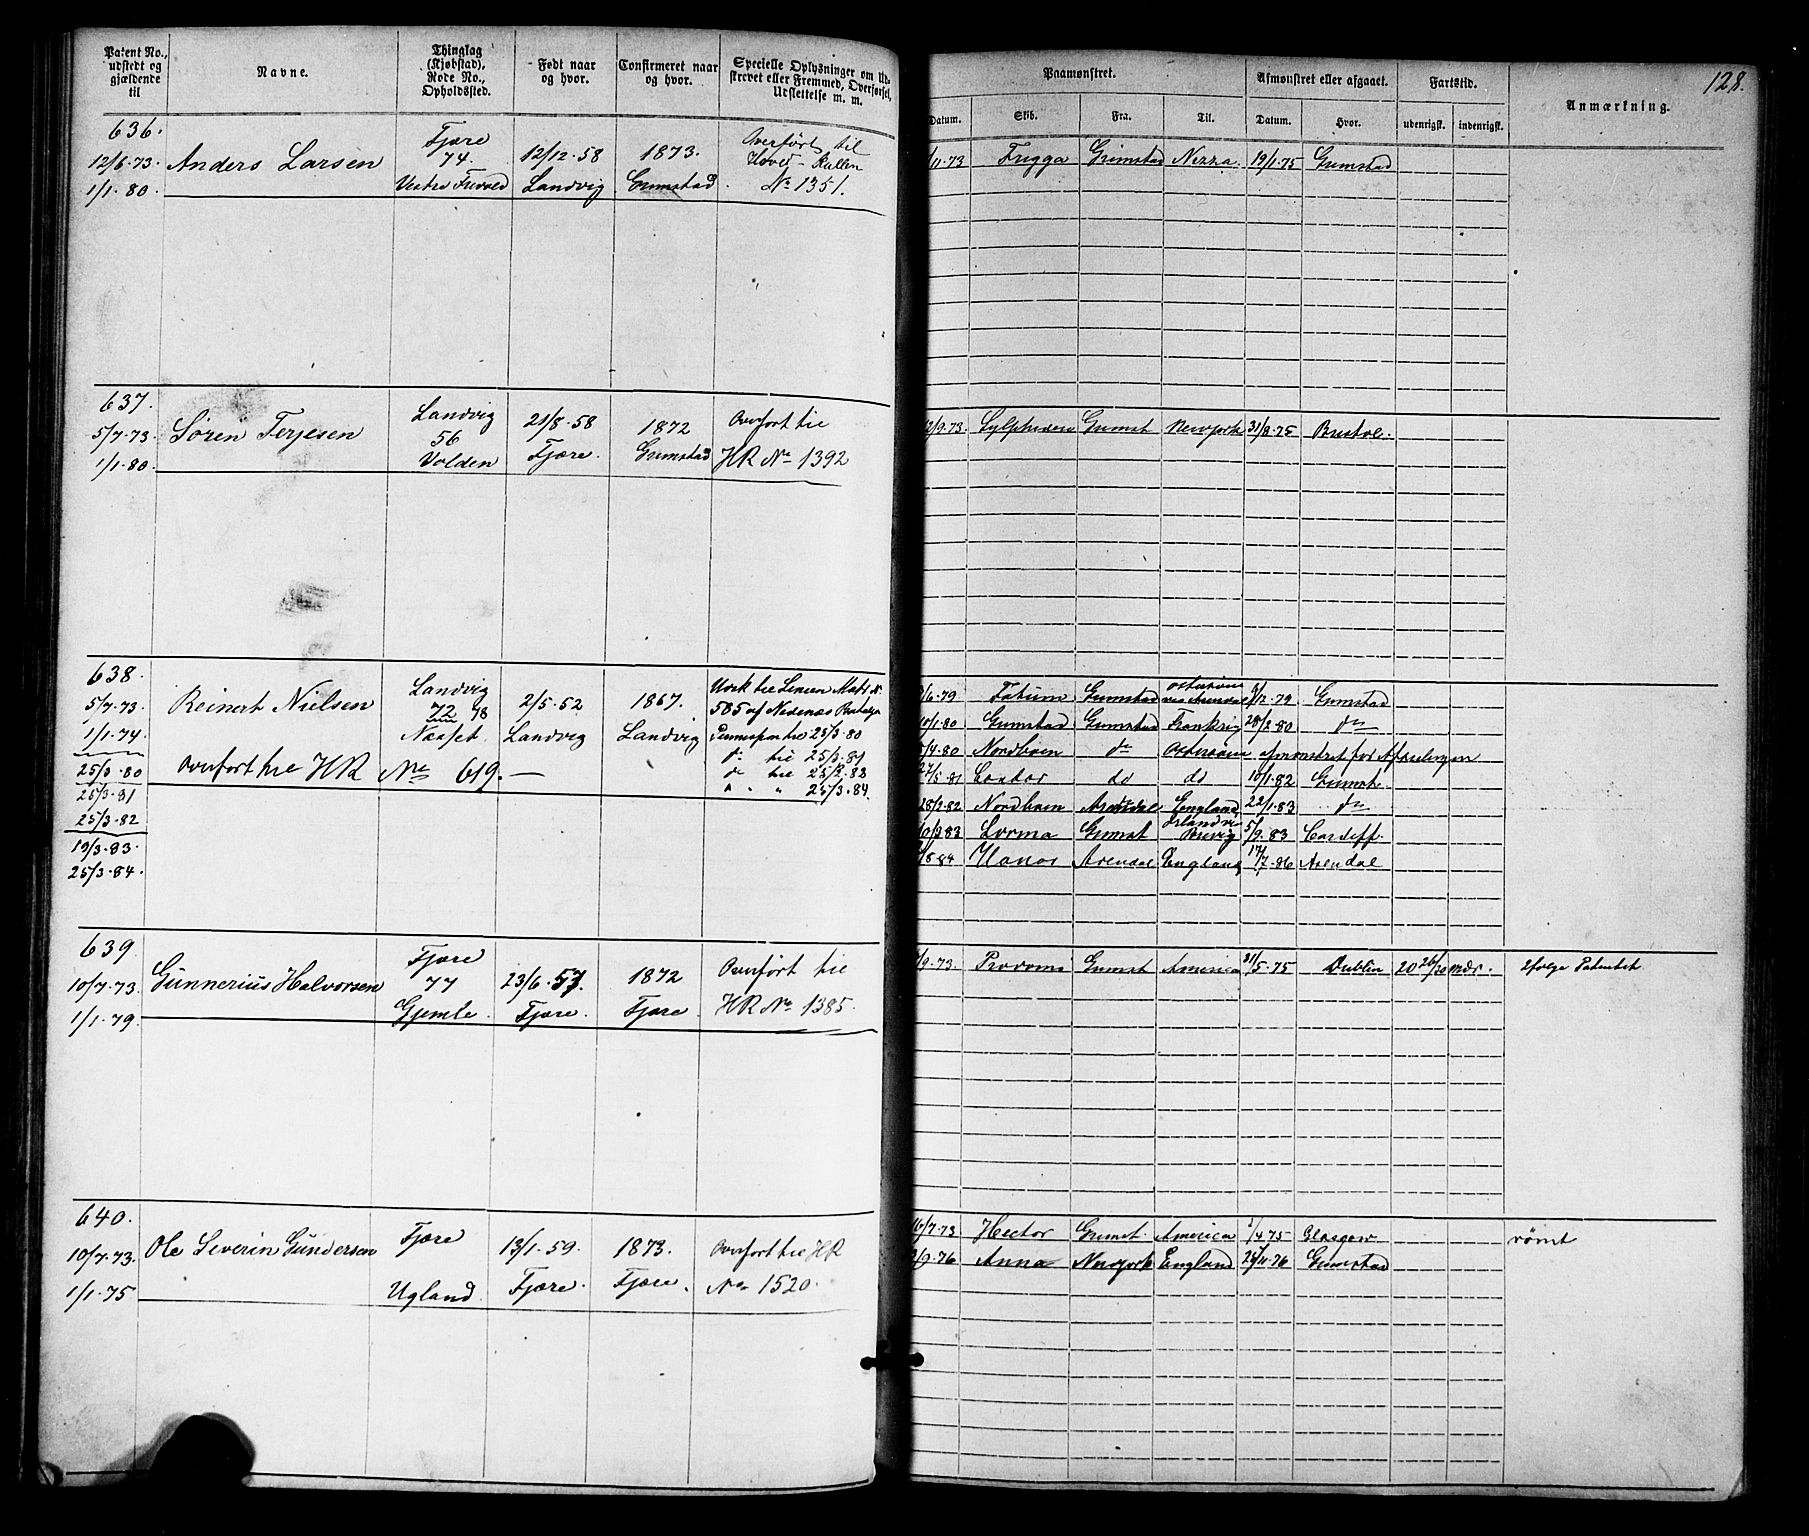 Patent No., udstedt og gjældende til
Navne.
Thinglag (Kjøbstad), Rode No., Opholdssted.
Født naar og hvor.
Confirmeret naar og hvor.
Specielle Oplysninger om Ud-
skrevet eller Fremmed, Overførsel,
Udslettelse m. m.
636.
12/6.73
1/1.80.
Anders Larsen
Fjære
74.
Vestre
12/12.58
Landvig
1873.
Grimstad.
Overført til
Hoved-Rullen
No 1351.
637.
5/7.73
1/1.80.
Sören Terjesen
Landvig
56
Volden
21/8.58
Fjære.
1872
Grimstad
Overført til
HR No 1392
638.
5/7.73.
1/1.74.
25/3.80
25/3.81
25/3.82
19/3.83.
25/3.84.
Reinert Nielsen
Landvig
72 48
2/5.52
Landvig
1867.
Landvig
585 af Nedenæs
25/3.80
do til 25/3.81
do til 25/2.83
" " " 25/3.84.
Overført til HR No 619.—
639.
10/7.73
1/1.79.
Gunnerius Halvorsen
Fjære
77
Gjemle.
23/6.57.
Fjære.
1872
Fjære
Overført til
HR No 1385.
640.
10/7.73.
1/1.75
Ole Severin Gundersen
Fjære
Ugland.
13/1.59.
Fjære.
1873.
Fjære.
Overført til HR
No 1520.
128.
Paamønstret.
Afmønstret eller afgaaet.
Fartstid.
Anmærkning.
Datum.
Skib.
Fra.
Til.
Datum.
Hvor.
udenrigsk.
indenrigsk.
/11.73 Frigga Grimstad Nizza. 19/1.75 Grimstad
2/9.73. Sylphiden Grimst Newyork 31/8.75 Bristol.
/6.79 Fatum Grimstad /12.79 Grimstad
10/1.80 Grimstad Grimstad Frankrig 28/2.80 do
/4.80 do Østersøen afmønstret før Afseilingen
27/5.81 Condor do do 10/1.82 Grimst.
28/2.82 Arendal England 22/1.83 do
10/3.83 Lorma Grimst Brevig 5/9.83 Cardiff.
/8.84 Honor Arendal England 17/7.86 Arendal
/9.73. Grimst America 31/5.75 Dublin 20 26/30 mdr. Ifølge Patentet
16/7.73 Hector Grimst. America /4.75 Glasgow rømt
/9.76 Anna Newyork England 24/11.76 Grimstad